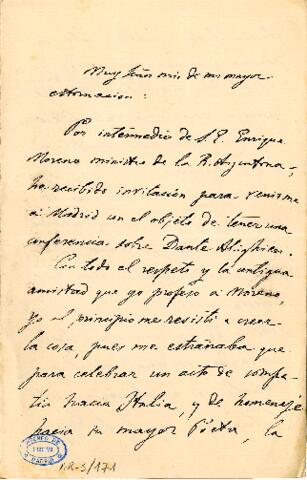 Muy Señor mio de mi mayor
estimacion:
Por intermedio de S. E. Enrique
Moreno ministro de la R. Argentina,
he recibido invitación para venirme
á Madrid con el objeto de tener una
conferencia sobre Dante Alighieri.
Con todo el respeto y la antigua
amistad que yo profeso á Moreno,
yo al principio me resistí á creer
la cosa, pues me estrañaba que
para celebrar un acto de simpa-
tia hacia Italia, y de homenaje
hacia su mayor Poeta, la
ATENEO DE
MADRID
AR-S/171